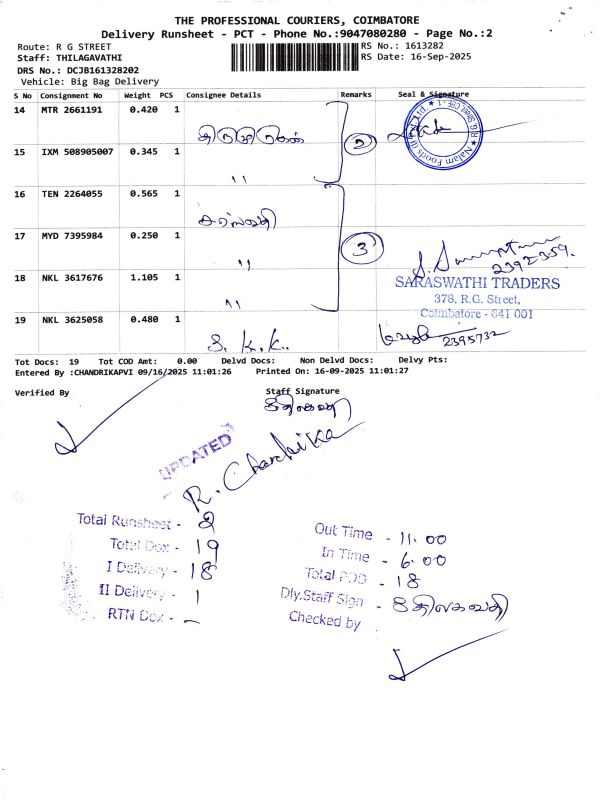 THE PROFESSIONAL COURIERS, COIMBATORE
Delivery Runsheet - PCT - Phone No.:9047080280 - Page No.:2
Route: R G STREET
RS No.: 1613282
Staff: THILAGAVATHI
RS Date: 16-Sep-2025
DRS No.: DCJB161328202
Vehicle: Big Bag Delivery
S No Consignment No Weight PCS Consignee Details Remarks Seal & Signature
14 MTR 2661191 0.420 1
15 IXM 508905007 0.345 1 " 2
16 TEN 2264055 0.565 1
17 MYD 7395984 0.250 1 " 3
2392359.
18 NKL 3617676 1.105 1 "
SARASWATHI TRADERS
378, R.G. Street,
Coimbatore - 641 001
19 NKL 3625058 0.480 1 S. K.K..
2395732
Tot Docs: 19 Tot COD Amt: 0.00 Delvd Docs: Non Delvd Docs: Delvy Pts:
Entered By :CHANDRIKAPVI 09/16/2025 11:01:26 Printed On: 16-09-2025 11:01:27
Verified By Staff Signature
UPDATED
R. Chandrika
Total Runsheet - 2
Total Dox - 19
I Delivery - 18
II Delivery - 1
RTN Dox - -
Out Time - 11.00
In Time - 6.00
Total POD - 18
Dly.Staff Sign - திலகவதி
Checked by